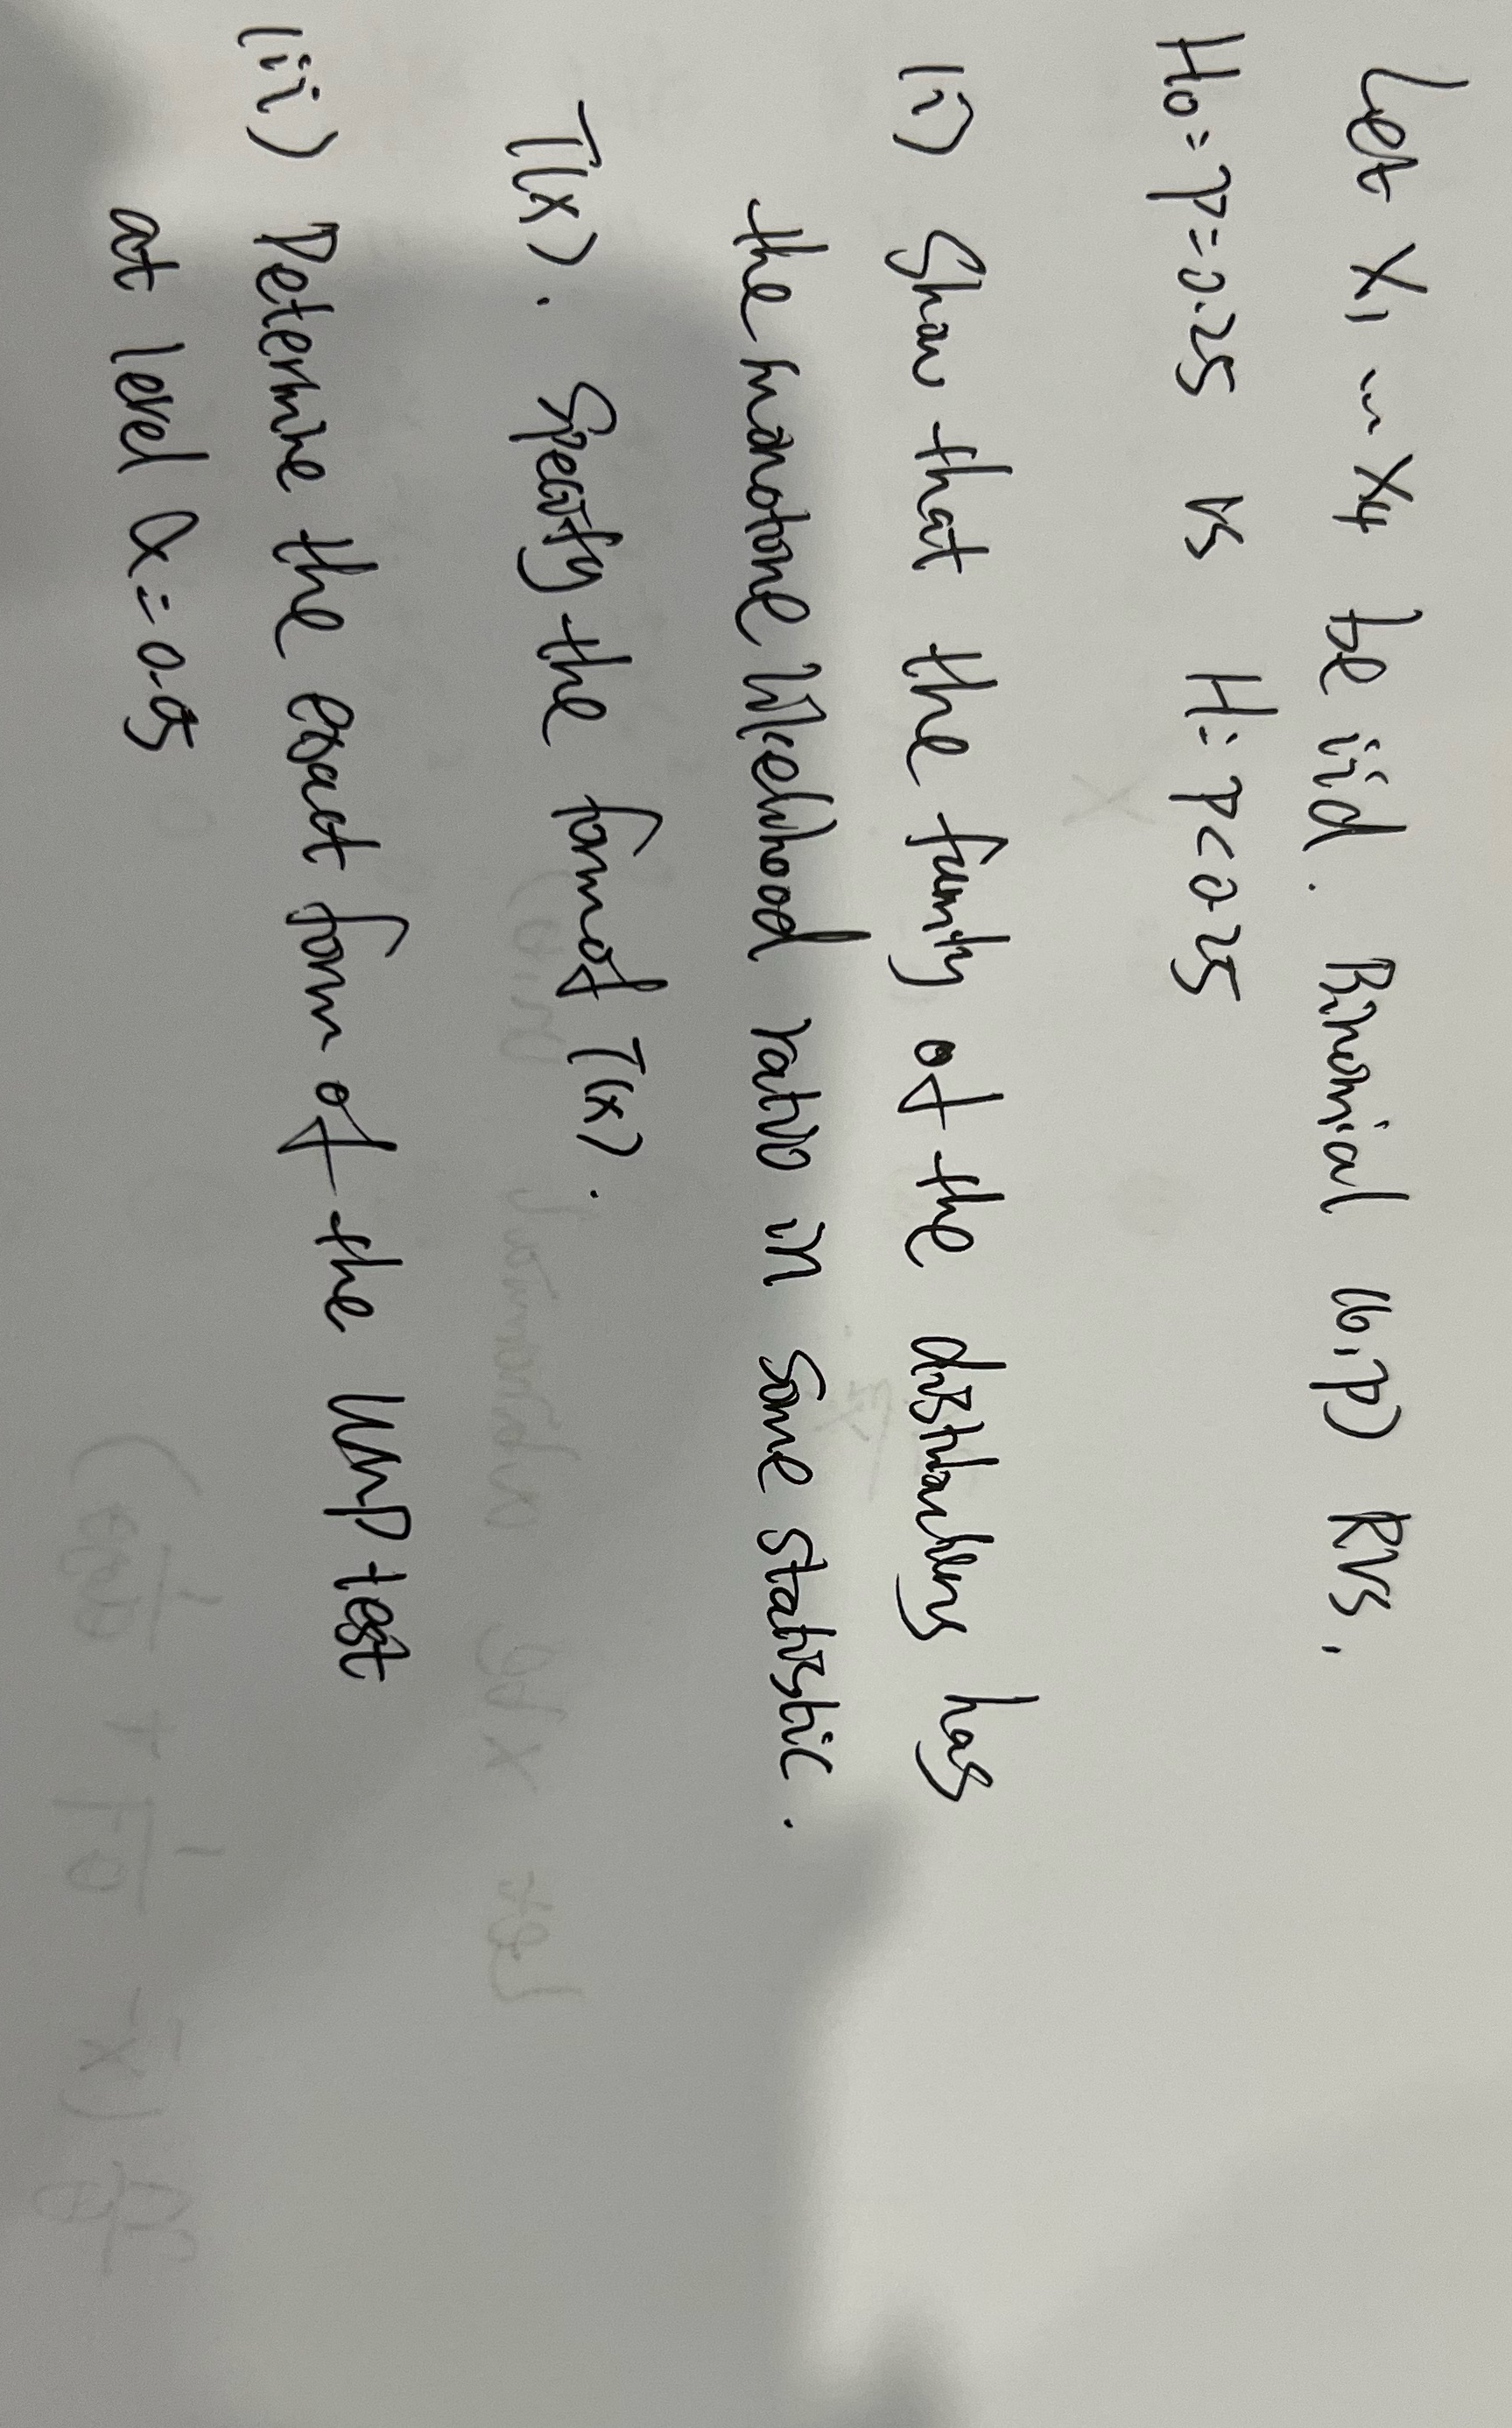 Let X1 ... X4 be iid. Binomial (6,p) RVs,
H0: p=0.25 vs H: p<0.25
(i) Show that the family of the distributions has
the monotone likelihood ratio in some statistic.
T(x). Specify the form of T(x).
(ii) Determine the exact form of the UMP test
at level α=0.05